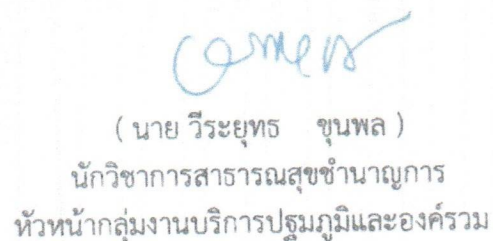 ( นาย วีระยุทธ ขุนพล )
นักวิชาการสาธารณสุขชำนาญการ
หัวหน้ากลุ่มงานบริการปฐมภูมิและองค์รวม